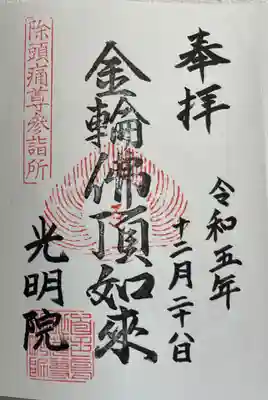 奉拝
令和五年
十二月二十八日
金輪佛頂如來
光明院
除頭痛尊参詣所